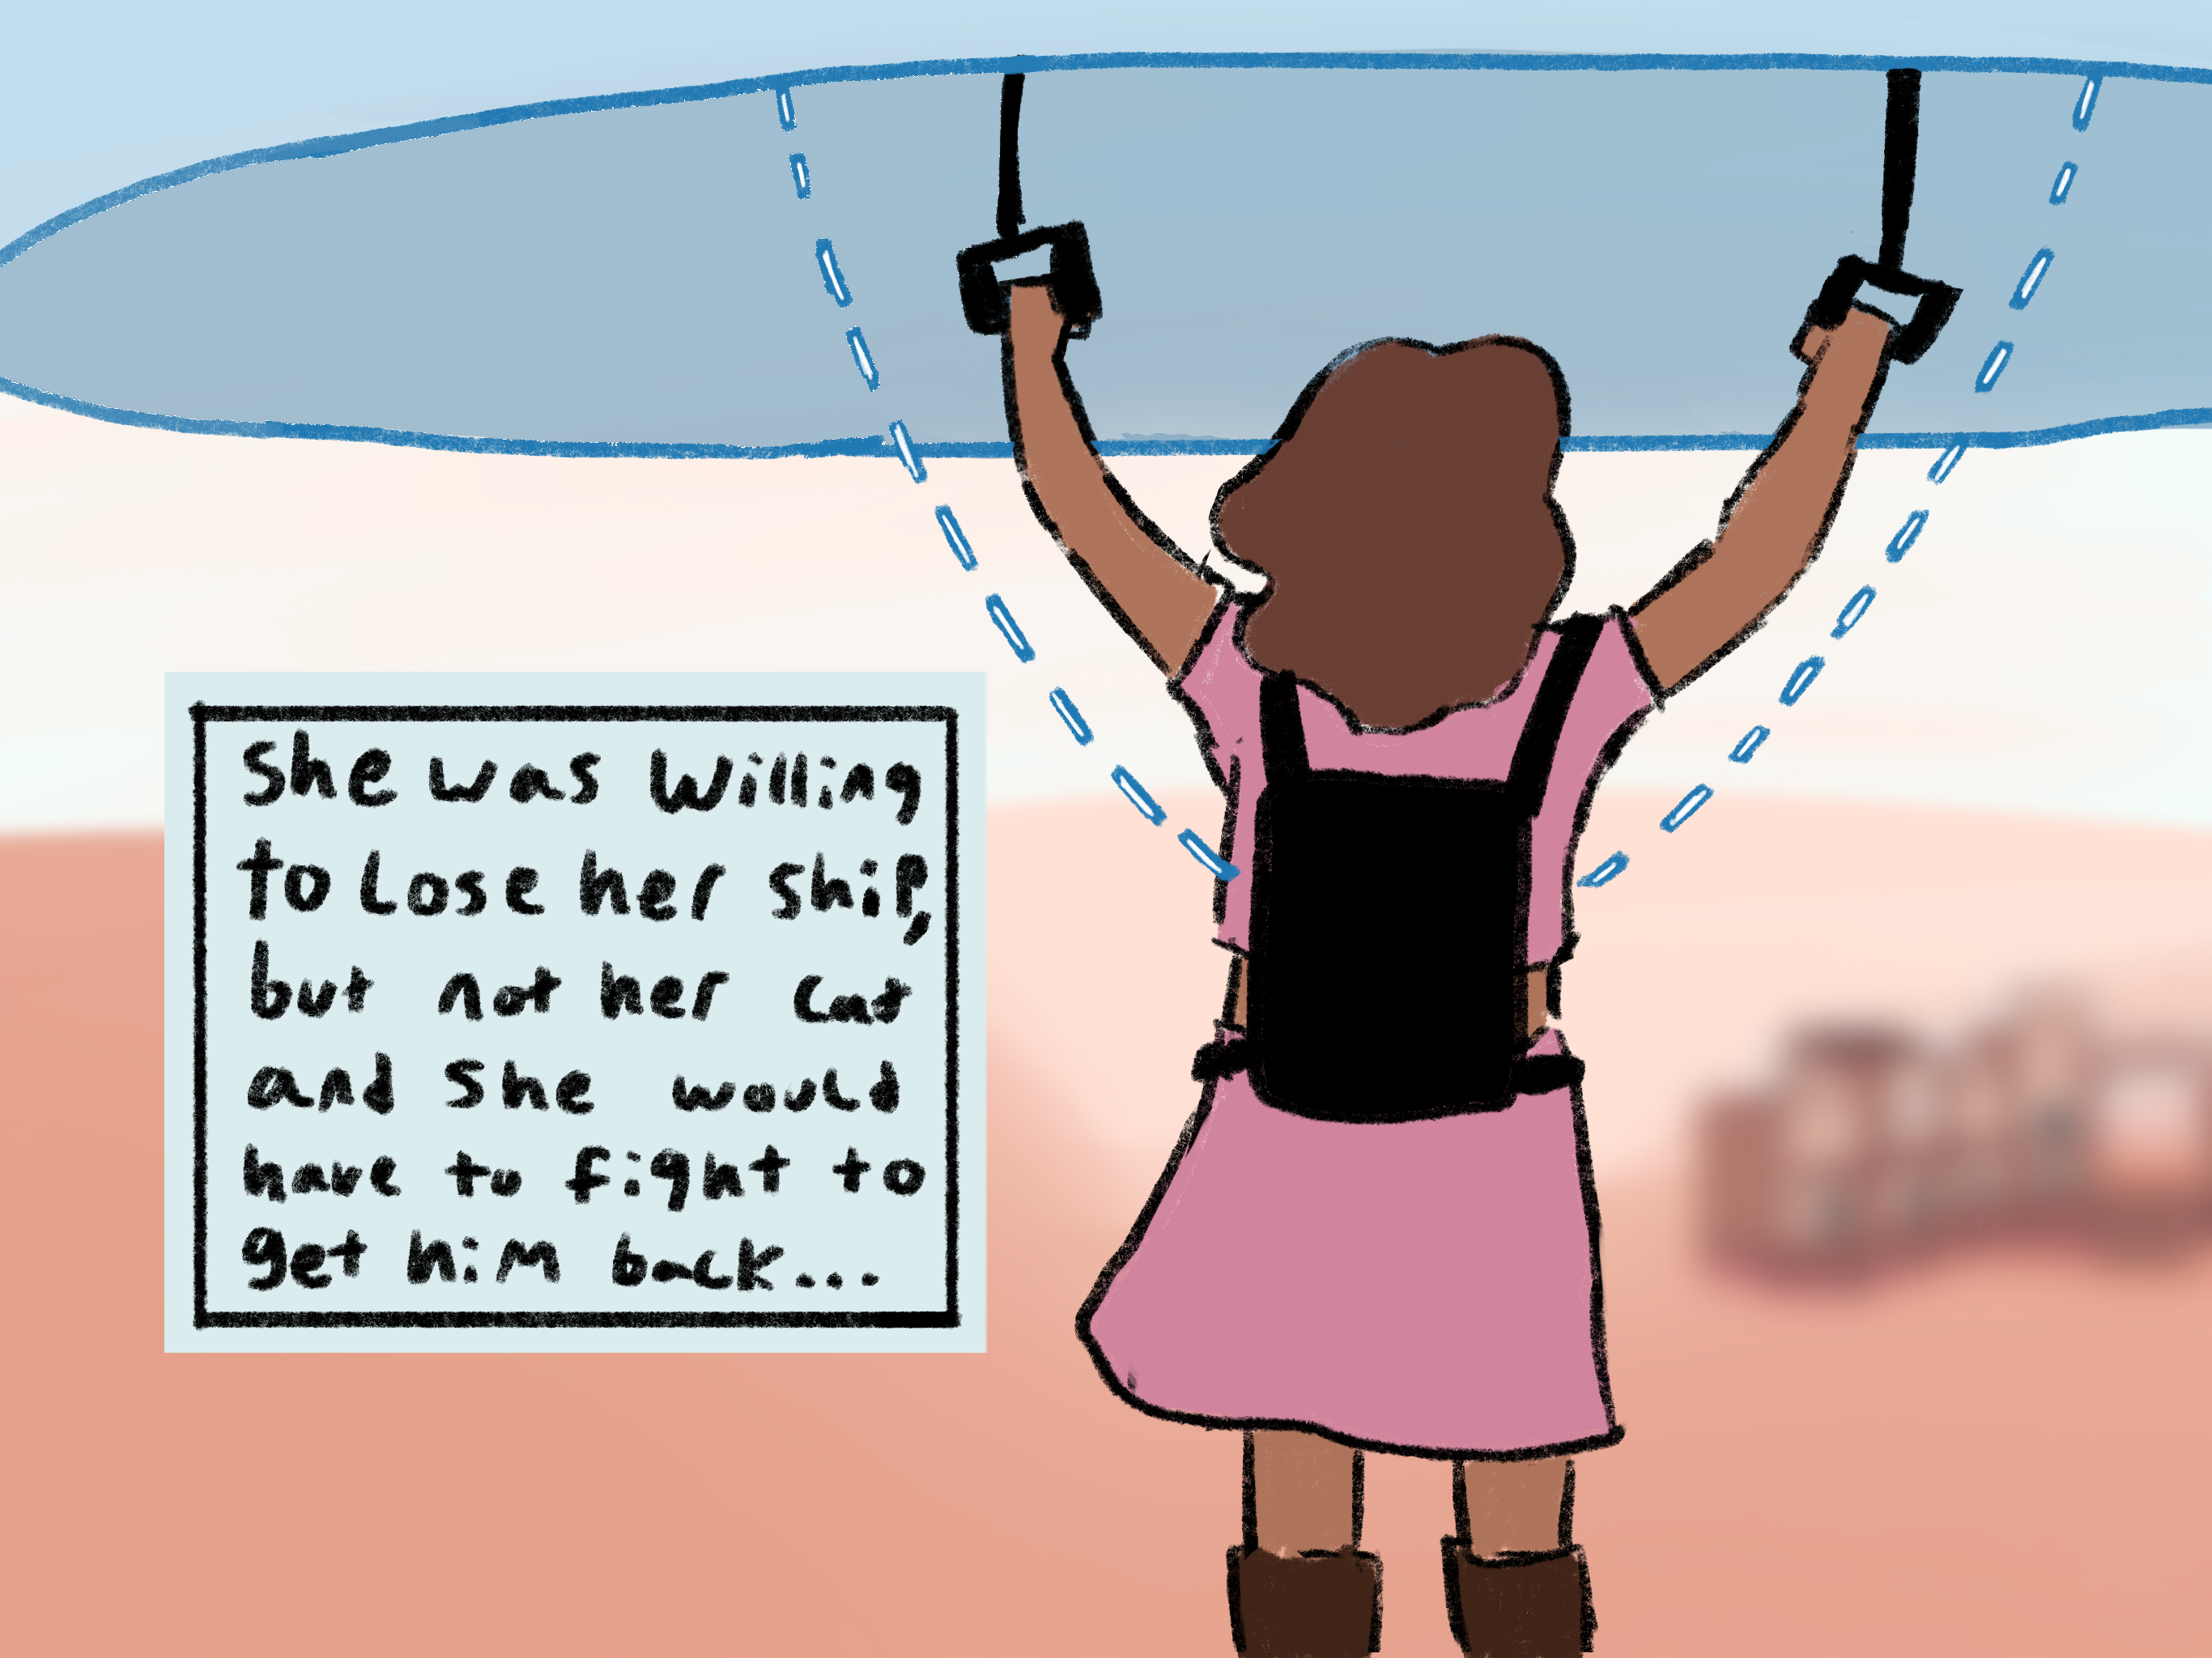 She was willing
to lose her ship,
but not her cat
and she would
have to fight to
get him back...